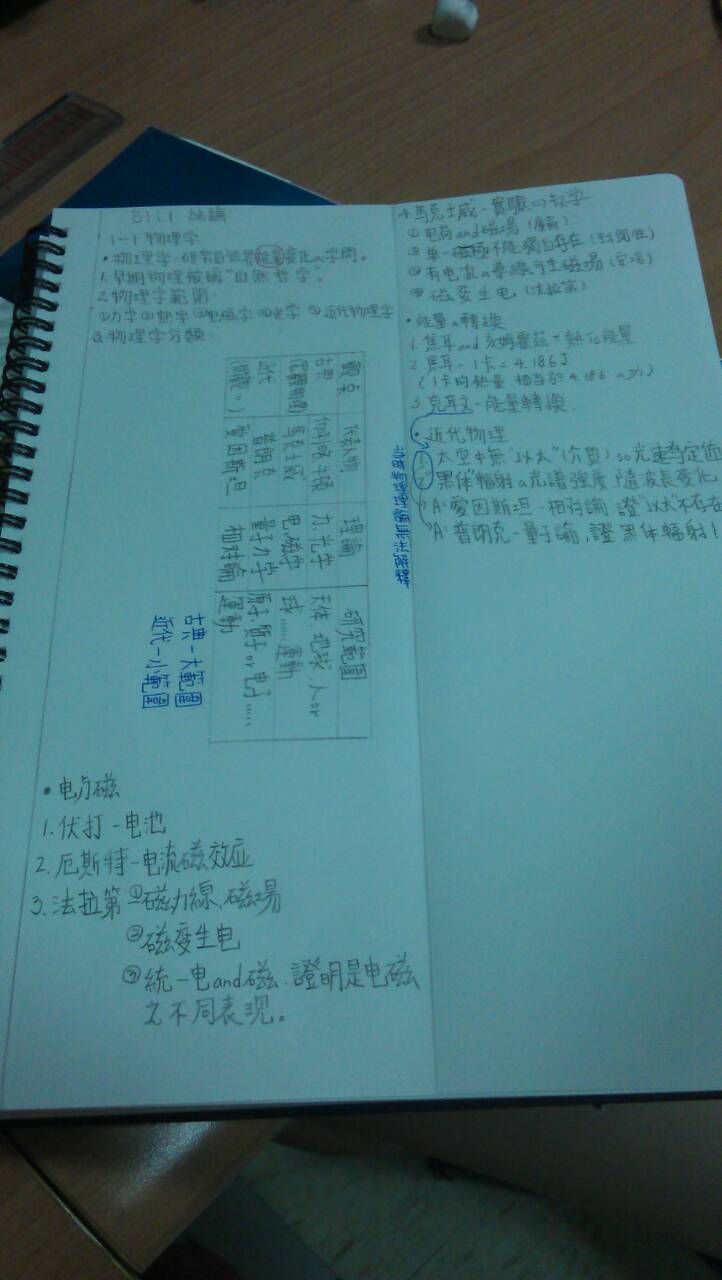 B1L1 緒論
1-1 物理学
•物理学-研究自然界能量变化a学問。
1.早期物理被稱"自然哲学"。
2.物理学範圍
①力学②熱学③电磁学④光学⑤近代物理学
3.物理学分類
觀点 代表人物 理論 研究範圍
古典 伽利略 牛頓 力.光学 天体 地球.人or
馬克士威 电.磁学 球……運動
近代 普朗克 量子力学 原子.質子or电子……
愛因斯坦 相対論 運動
古典-大範圍
近代-小範圍
•电与磁
1.伏打-电池
2.厄斯特-电流磁效应
3.法拉第①磁力線.磁場
②磁变生电
③統一电and磁.證明是电磁
之不同表现。
4.馬克士威-實驗⇒数学
①电荷and磁場
②單一磁極不能獨自存在(封閉性)
③有电流a導線可生磁場(安培)
④磁变生电(法拉第)
•能量a轉換
1.焦耳and亥姆霍茲=熱is能量
2.焦耳-1卡=4.186J
(1卡的熱量 相当於4.186 a功)
3.克耳文-能量轉換
•近代物理
太空中無"以太"(介質)so光速為定值
黑体"輻射a光譜強度"隨波長变化
A:愛因斯坦-相対論 證"以太"不存在
A:普朗克-量子論,證黑体輻射!
古典物理理論無法解釋